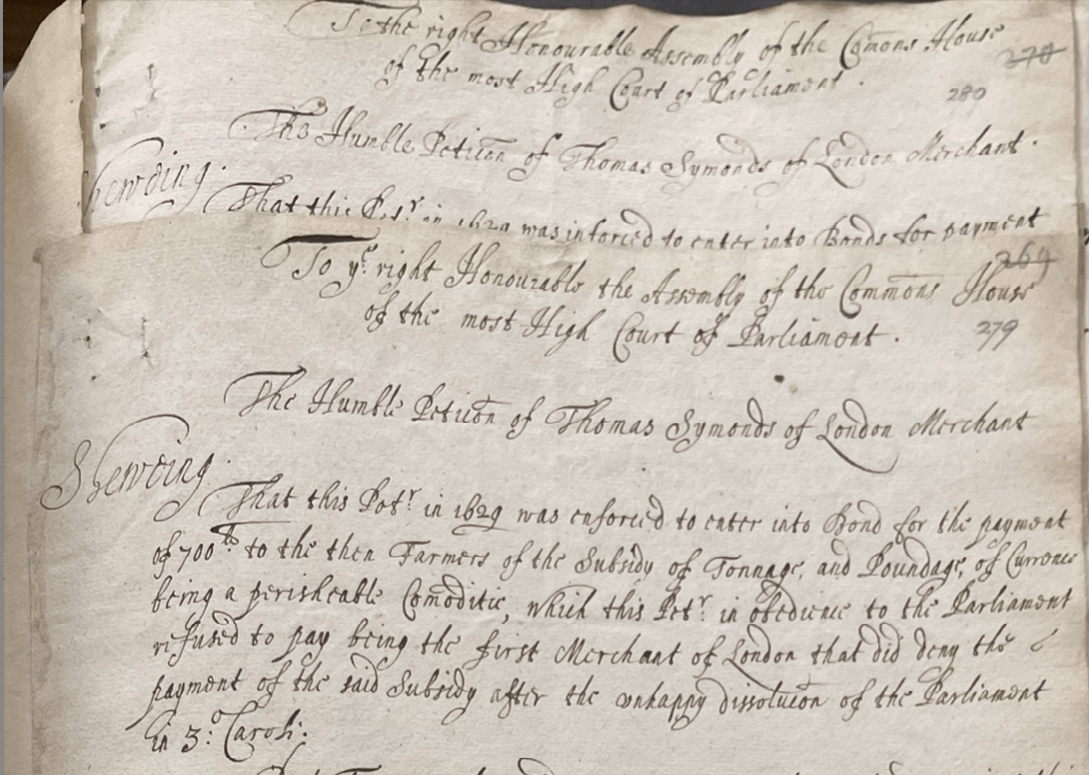 To the right Honourable Assembly of the Comons House
270
of the most High Court of Parliament.
280
The Humble Peticōn of Thomas Symonds of London Merchant.
heweing.
That this Petr. in 1629 was inforced to enter into Bonds for payment
To ye. right Honourable the Assembly of the Commons House
269
of the most High Court of Parliament.
279
The Humble Peticōn of Thomas Symonds of London Merchant
Sheweing.
That this Petr. in 1629 was enforced to enter into Bond for the payment
of 700li. to the then Farmers of the Subsidy of Tonnage, and Poundage, of Currence
being a perisheable Comoditie, which this Petr. in obedience to the Parliament
refused to pay being the first Merchant of London that did deny the
payment of the said Subsidy after the unhappy dissolucōn of the Parliament
in 3.o Caroli.